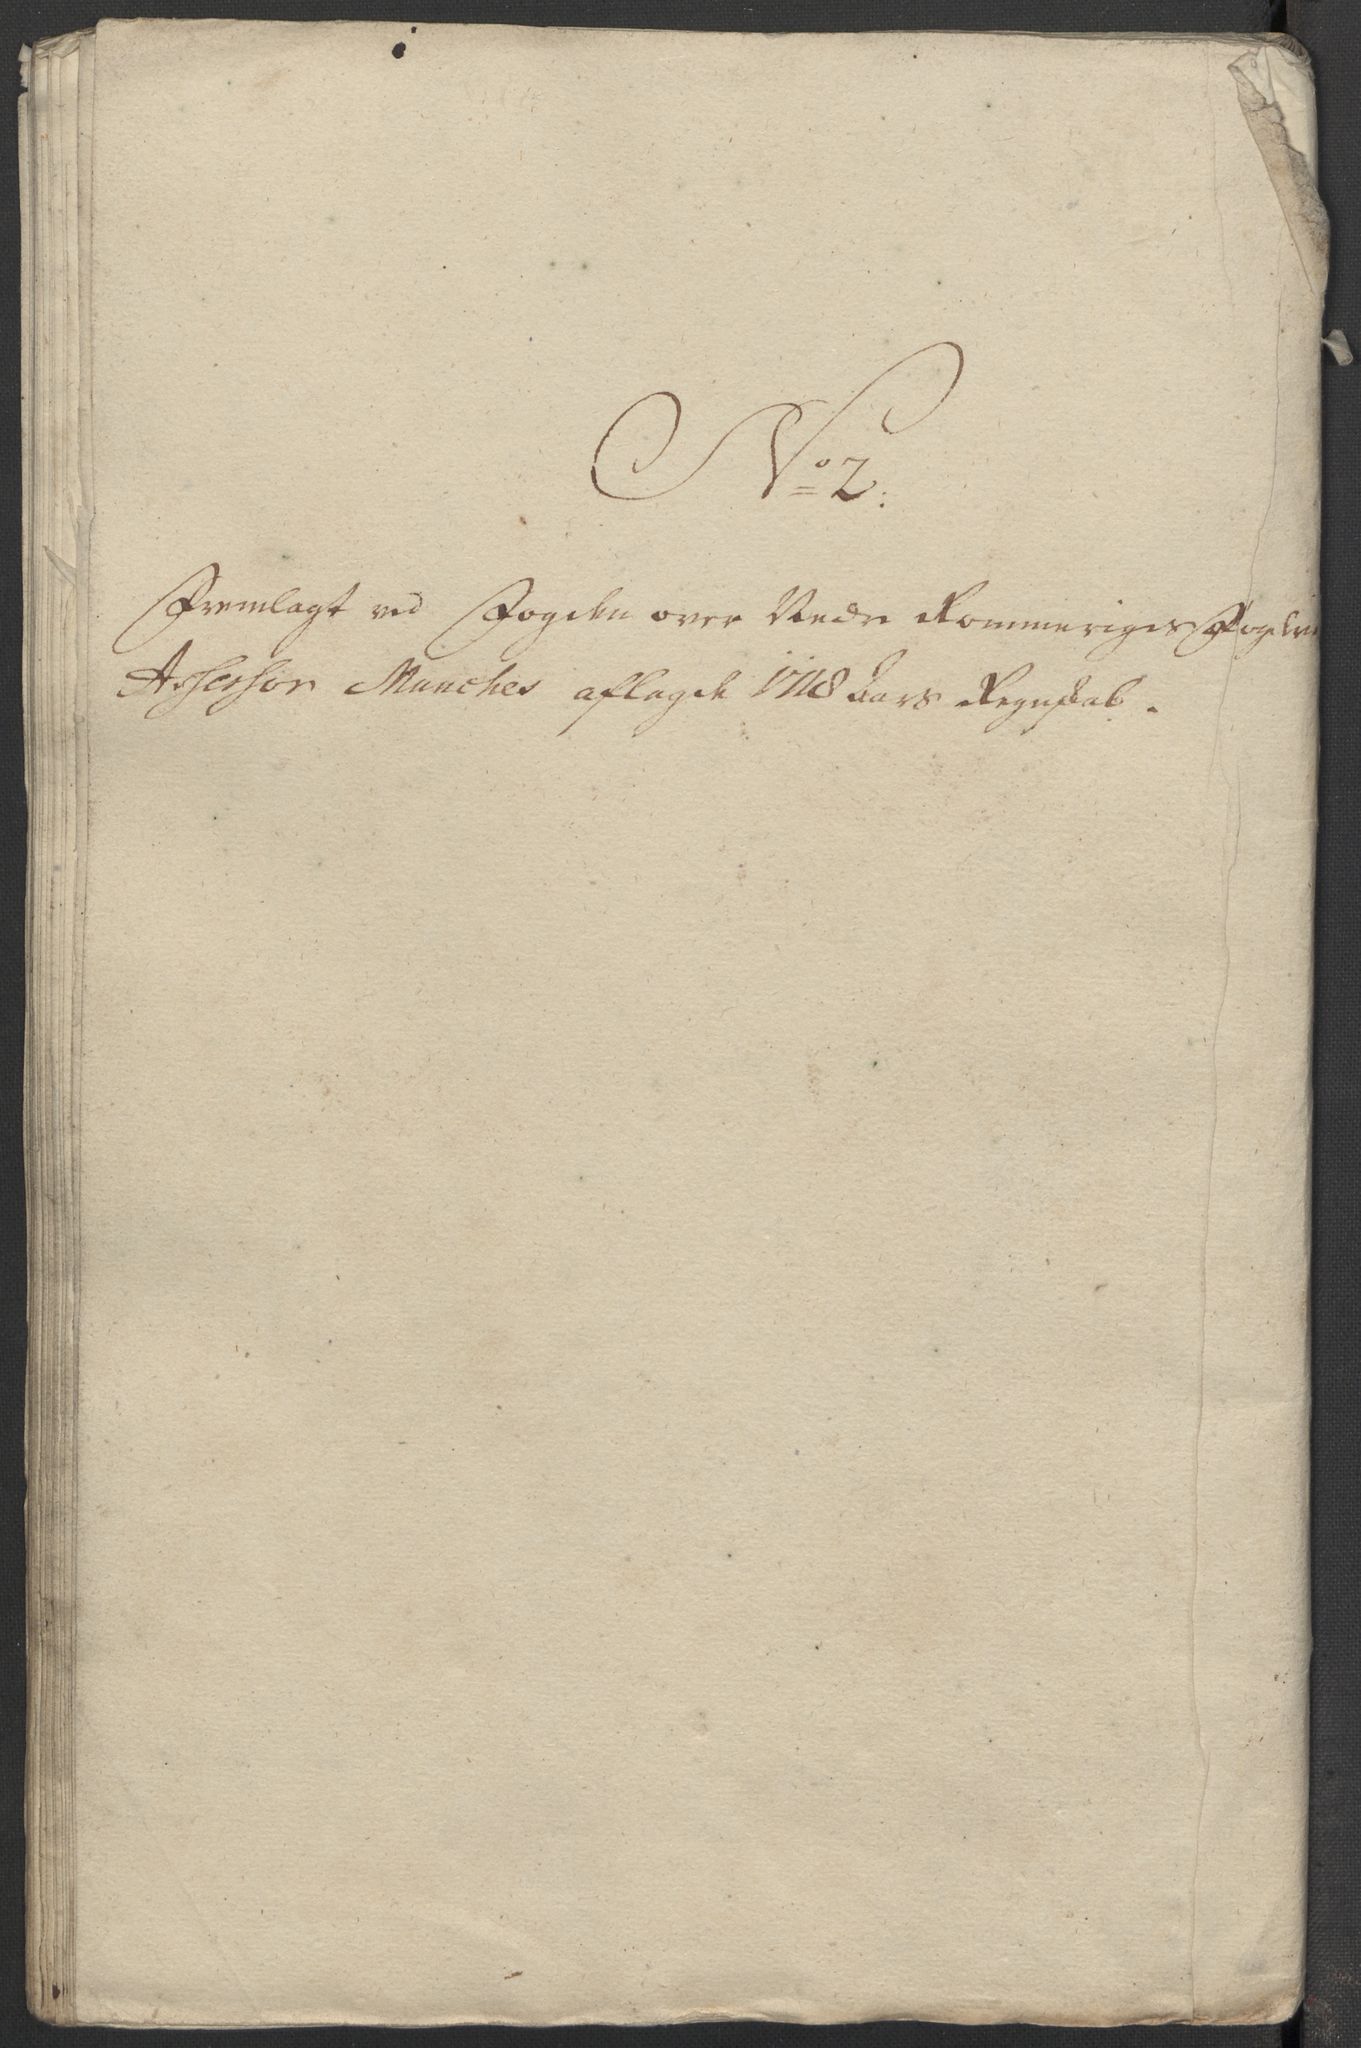 No 2.
Fremlagt ved Fogden over Nedre Rommeriges Fogderi
Assessor Munches aflagde 1718 Aars Regnskab.